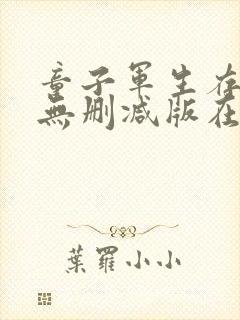 童子軍生存
無刪減版在
葉羅小小